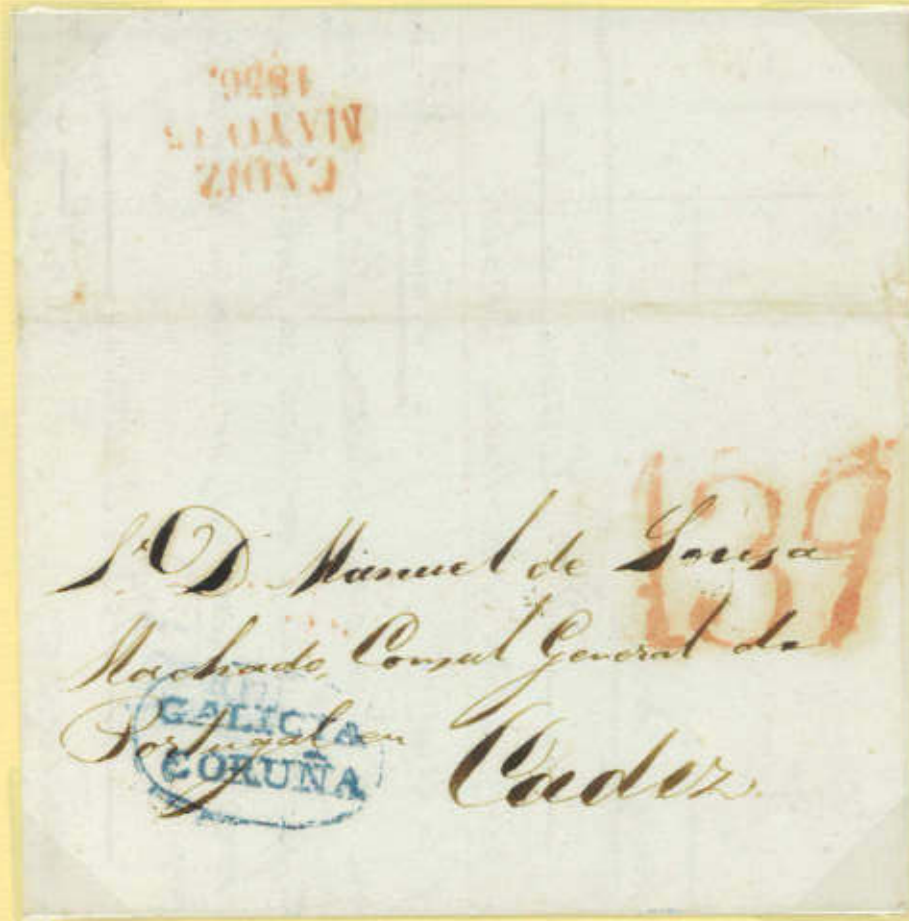 CADIZ
MAYO 17
1836.
139
Sr. D. Manuel de Sousa
Machado, Consul General de
Portugal en Cadiz.
GALICIA
CORUÑA